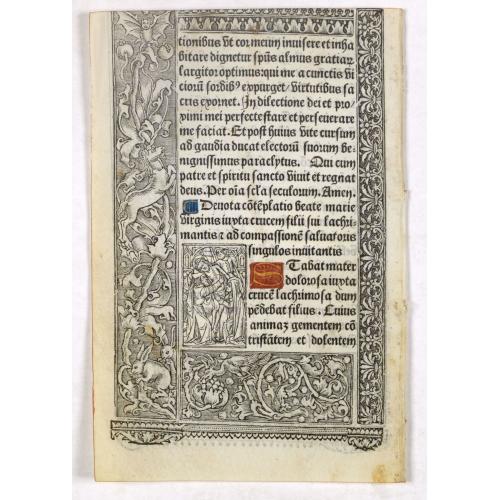 tionibus vt cor meum inuisere et inha
bitare dignetur spūs almus gratiaꝝ
largitor optimus: qui me a cunctis vi
ciorū sordibꝰ expurget / virtutibus sa
cris exornet. In dilectione dei et pro
ximi mei perfecte stare et perseuerare
me faciat. Et post huius vite cursum
ad gaudia ducat electorū suorum be-
nignissimus paraclytus. Qui cum
patre et spiritu sancto viuit et regnat
deus. Per oīa scl̄a seculorum. Amen.
Deuota cōtēplatio beate marie
virginis iuxta crucem filii sui lachri-
mantis ⁊ ad compassionē saluatoris
singulos inuitantis
STabat mater
dolorosa iuxta
crucē lachrimosa dum
pēdebat filius. Cuius
animaꝫ gementem cō
tristātem et dolentem